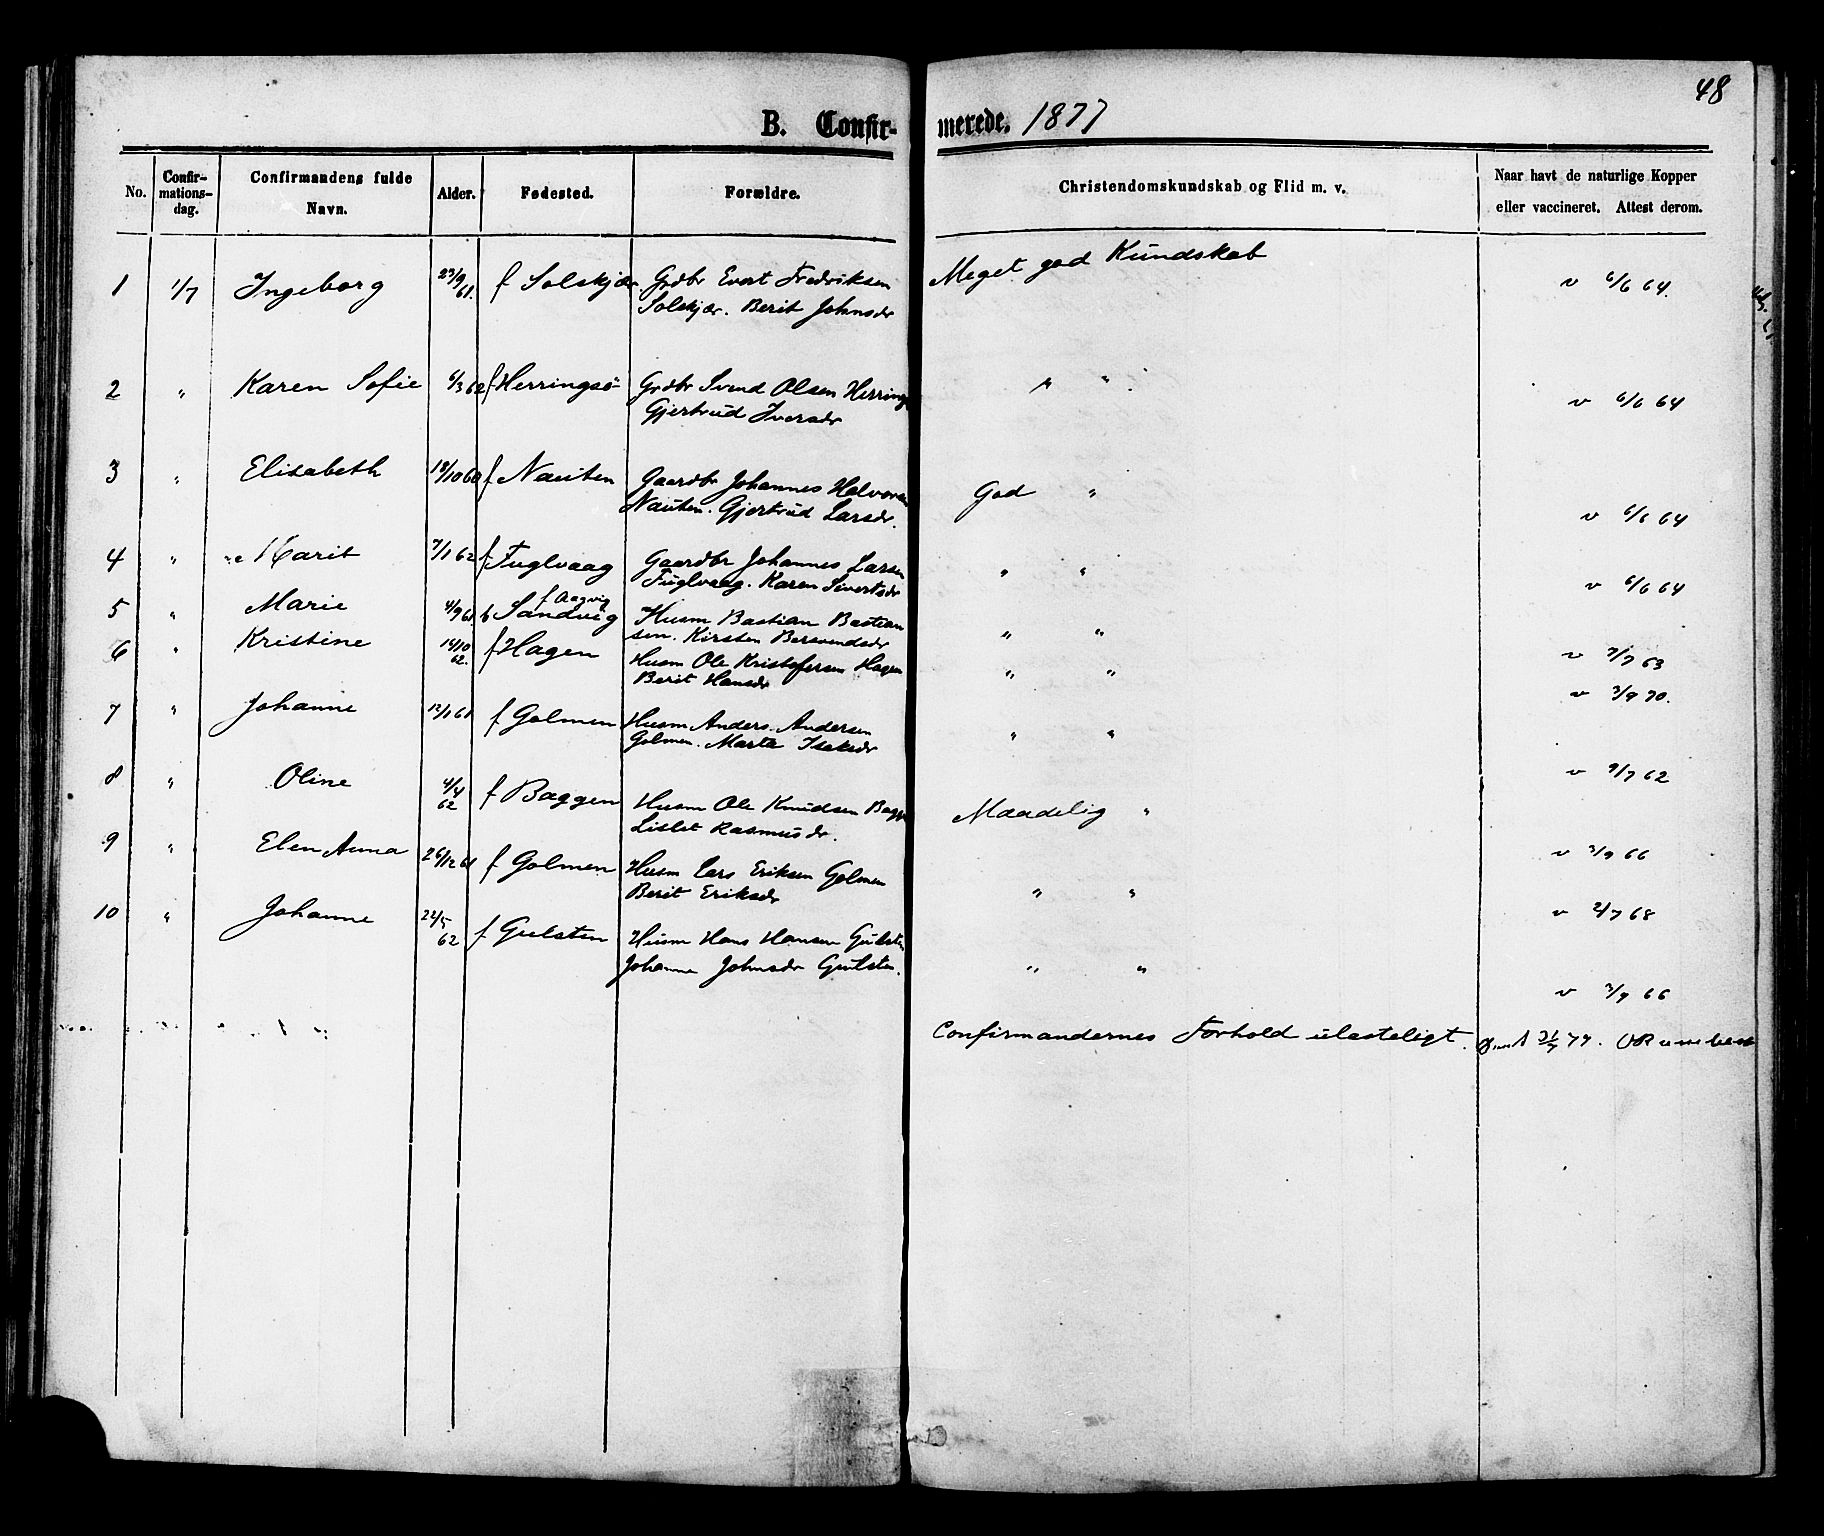 48
B. Confirmerede. 1877
No. Confirmationsdag. Confirmandens fulde Navn. Alder. Fødested. Forældre. Christendomskundskab og Flid m. v. Naar havt de naturlige Kopper eller vaccineret. Attest derom.
1 1/7 Ingeborg 23/9 61. f Solskjær. Grdbr Evert Fredriksen Meget god Kundskab v 6/6 64.
Solskjær. Berit Johnsdr
2 " Karen Sofie 6/3 62 f Herringsö Grdbr Svend Olsen Herrings " " v 6/6 64
Gjertrud Iversdr
3 " Elisabeth 18/10 60 f Nauten Gaardbr Johannes Halvorsen God " v 6/6 64
Nauten. Gjertrud Larsdr.
4 " Marit 7/1 62 f Fuglvaag Gaardbr Johannes Larsen " " v 6/6 64
Fuglvaag. Karen Sivertsdr
f Aagvig
5 " Marie 4/9 61 b Sandvig Husm Bastian Bastian " " v 7/7 63
sen. Kirsten Berendsdr
6 " Kristine 14/10 62. f Hagen Husm Ole Kristofersen Hagen " " v 3/9 70.
Berit Hansdr
7 " Johanne 12/1 61 f Golmen Husm Anders. Andersen " " v 9/7 62
Golmen. Marta Isaksdr
8 " Oline 4/4 62 f Baggen Husm Ole Knudsen Bagge Maadelig " v 3/9 66
Lislet Rasmusdr.
9 " Elen Anna 26/12 61 f Golmen Husm Lars Eriksen Golmen " " v 2/7 68
Berit Eriksdr
10 " Johanne 22/5 62 f Gulsten Husm Hans Hansen Gulsten " " v 3/9 66
Johanne Johnsdr Gulsten.
Confirmandernes Forhold ulasteligt.